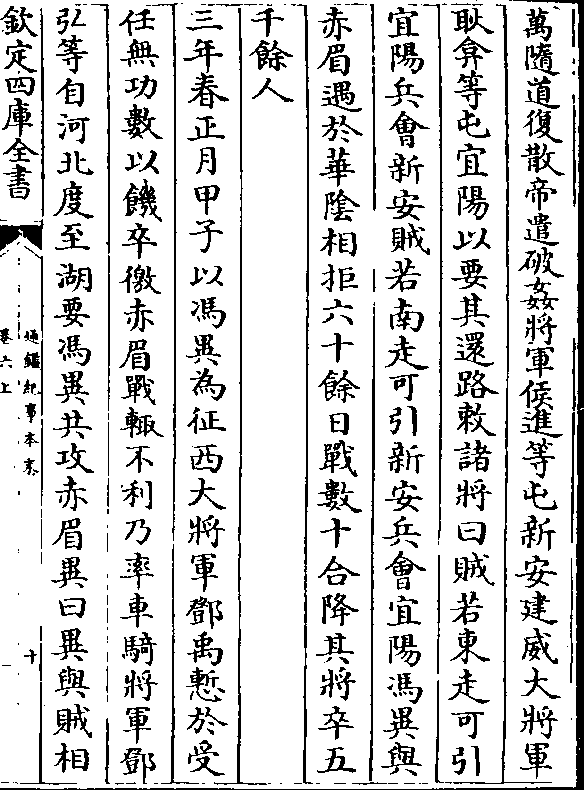 萬隨道復散帝遣破姦將軍侯進等屯新安建威大將軍
耿弇等屯宜陽以要其還路敕諸將曰賊若東走可引
宜陽兵會新安賊若南走可引新安兵會宜陽馮異與
赤眉遇於華陰相拒六十餘日戰數十合降其將卒五
千餘人
三年春正月甲子以馮異為征西大將軍鄧禹慙於受
任無功數以饑卒徼赤眉戰輒不利乃率車騎將軍鄧
弘等自河北度至湖要馮異共攻赤眉異曰異與賊相
欽定四庫全書
通鑑紀事本末
卷六上
十